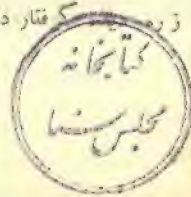 ز ر گفتار د
کتابخانه
مجلس سنا